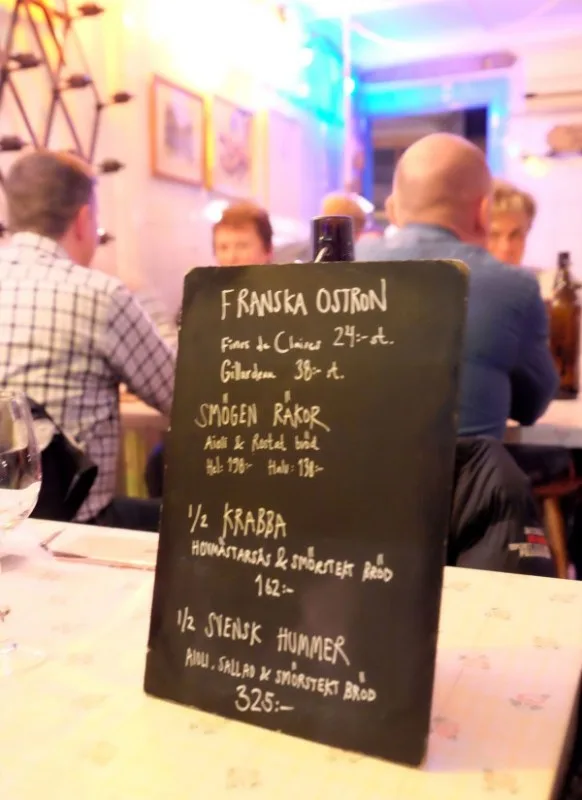 FRANSKA OSTRON
Fines de Claires 24:- st.
Gillardeau 38:- st.
SMÖGEN RÄKOR
Aioli & Rostat bröd
Hel: 198:- Halv: 138:-
1/2 KRABBA
HOVMÄSTARSÅS & SMÖRSTEKT BRÖD
162:-
1/2 SVENSK HUMMER
AIOLI, SALLAD & SMÖRSTEKT BRÖD
325:-